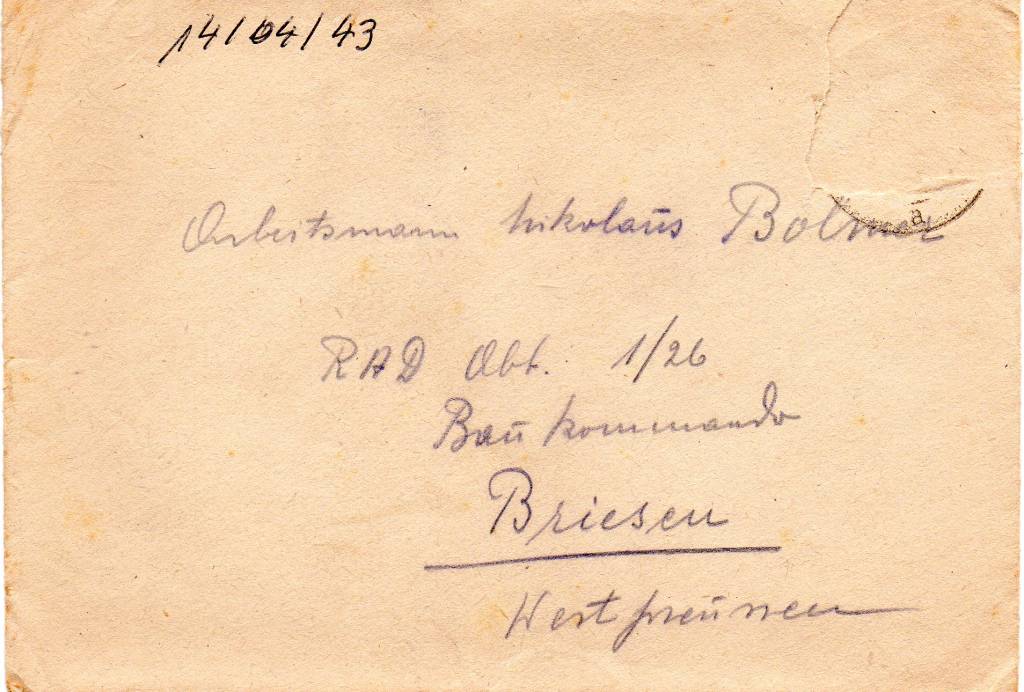 14/04/43
Arbeitsmann Nikolaus Bolmer
a
RAD Abt. 1/26
Baukommando
Briesen
Westpreussen